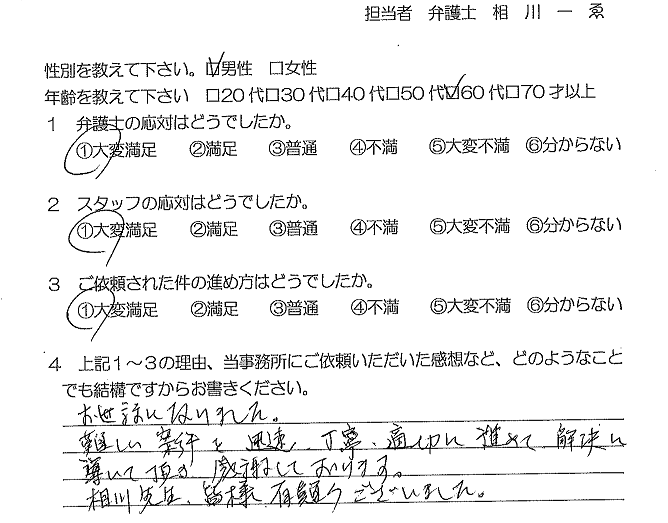 担当者　弁護士　相　川　一　ゑ
性別を教えて下さい。☑男性　□女性
年齢を教えて下さい　□20代□30代□40代□50代☑60代□70才以上
1　弁護士の応対はどうでしたか。
①大変満足　②満足　③普通　④不満　⑤大変不満　⑥分からない
2　スタッフの応対はどうでしたか。
①大変満足　②満足　③普通　④不満　⑤大変不満　⑥分からない
3　ご依頼された件の進め方はどうでしたか。
①大変満足　②満足　③普通　④不満　⑤大変不満　⑥分からない
4　上記1～3の理由、当事務所にご依頼いただいた感想など、どのようなこと
でも結構ですからお書きください。
お世話になりました。
難しい案件を迅速、丁寧、適切に進めて解決に
導いて頂き感謝しております。
相川先生、皆様、有難うございました。